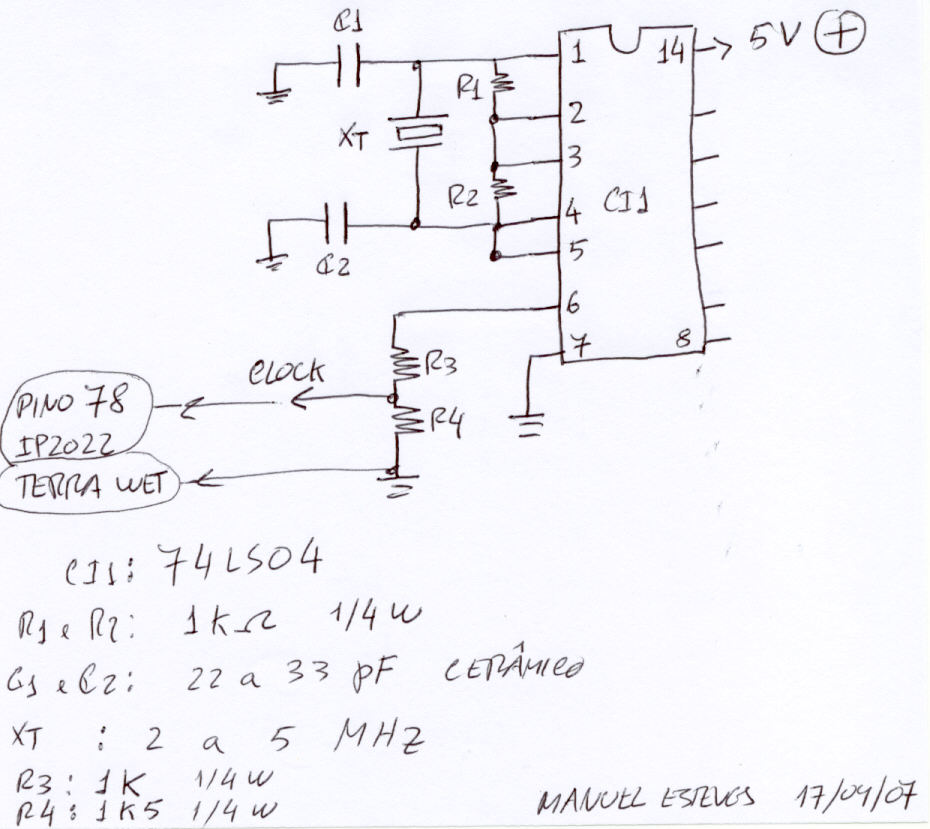 C1
1 14 5V +
R1
2
XT
3
R2
CI1
4
C2
5
6
7 8
R3
CLOCK
R4
PINO 78
IP2022
TERRA WET
CI1: 74LS04
R1 e R2: 1KΩ 1/4 W
C1 e C2: 22 a 33 pF CERÂMICO
XT : 2 a 5 MHZ
R3: 1K 1/4 W
R4: 1K5 1/4 W
MANUEL ESTEVES 17/09/07